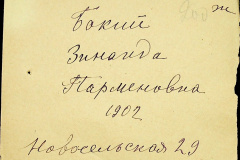 ж
Бокий
Зинаида
Парменовна
1902
Новосельская 29